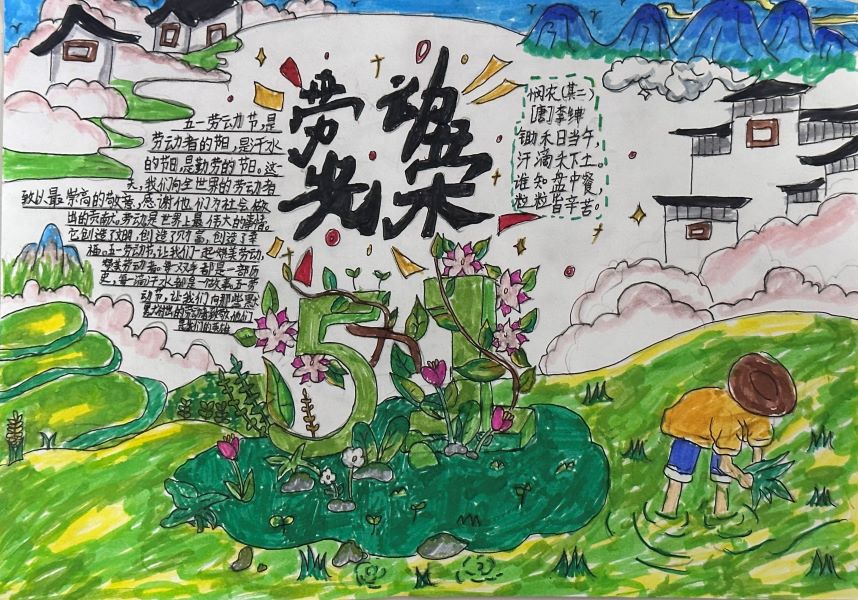 劳动
光荣
五一劳动节,是
劳动者的节日,是汗水
的节日,是勤劳的节日。这
天,我们向全世界的劳动者
致以最崇高的敬意,感谢他们为社会做
出的贡献。劳动是世界上最伟大的事情。
它创造了文明,创造了财富,创造了幸
福。五一劳动节,让我们一起赞美劳动,
赞美劳动者。每双手都是一部历
史,每一滴汗水都是一个故事。五一劳
动节,让我们向那些默
默的劳动者致敬,他们
是我们的英雄
悯农(其二)
[唐]李绅
锄禾日当午,
汗滴禾下土。
谁知盘中餐,
粒粒皆辛苦。
51